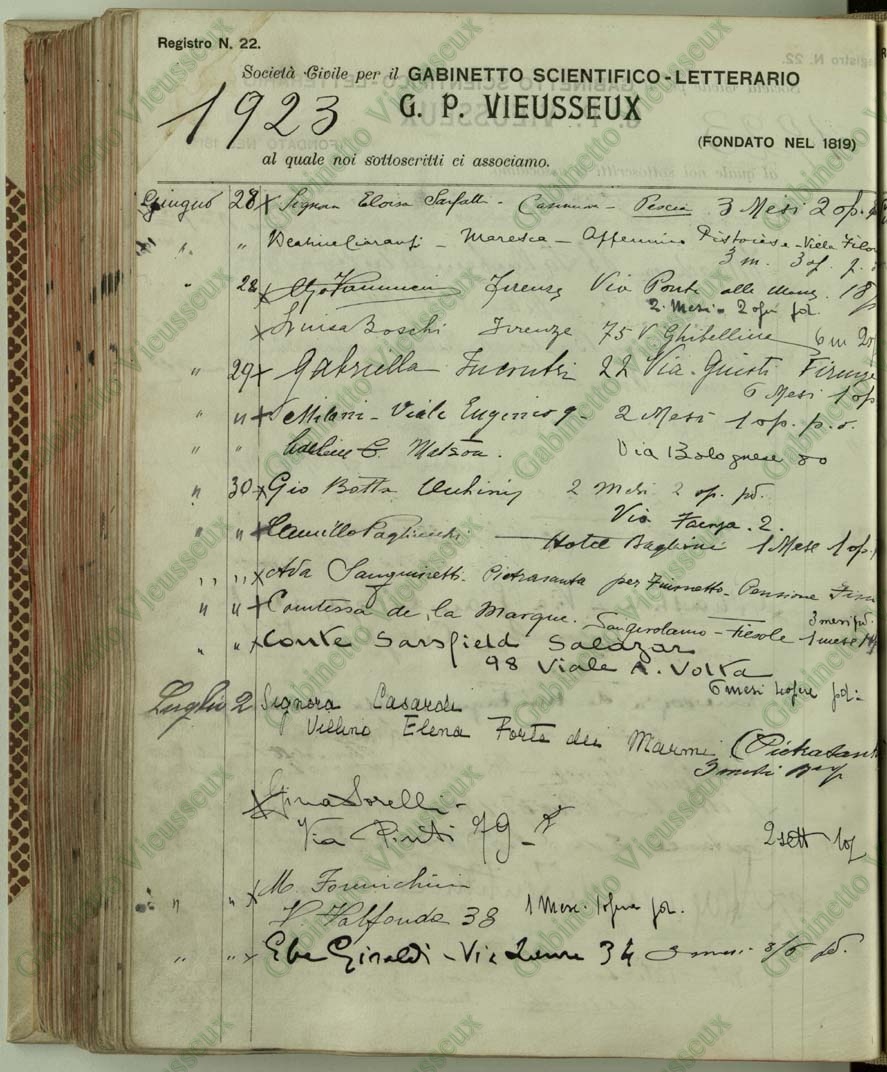 Registro N. 22.
Società Civile per il GABINETTO SCIENTIFICO-LETTERARIO
1923 G. P. VIEUSSEUX
(FONDATO NEL 1819)
al quale noi sottoscritti ci associamo.
Giugno 28 x Signora Eloisa Sarfatti - Pescia 3 Mesi 2 op.
" " Beatrice - Maresca - Appennino Pistoiese - Villa
3 m. 3 op.
" 28 x Vannucci Firenze Via Ponte alle Mosse 18
2 Mesi - 2 opere pd.
x Luisa Boschi Firenze 75 V Ghibellina 6 m
" 29 x Gabriella Incontri 22 Via Giusti Firenze
6 Mesi 1 op
" " x Milani - Viale Eugenio 9 - 2 Mesi 1 op. p. o.
" " Adeline E. Matson. Via Bolognese 80
" 30 x Gio Batta 2 Mesi 2 op. pd.
Via Faenza. 2.
" " x Camillo Hotel Baglioni 1 Mese 1 op.
" " x Ada Sanguinetti Pietrasanta per Fiumetto - Pensione
3 mesi pd.
" " x Comtessa de la Marque. San Girolamo - Fiesole 1 mese
" " x Conte Sarsfield Salazar
98 Viale A. Volta
6 mesi 4 opere pd:
Luglio 2 Signora Casardi
Villino Elena Forte dei Marmi (Pietrasanta
3 mesi
x Gina Sorelli -
Via Pinti 79 -
2 sett 1 op
" " x M. Formichini
V. Valfonda 38 1 Mese. 1 opera pd.
" " x Ebe Giraldi - Via 34 3 mesi pd.